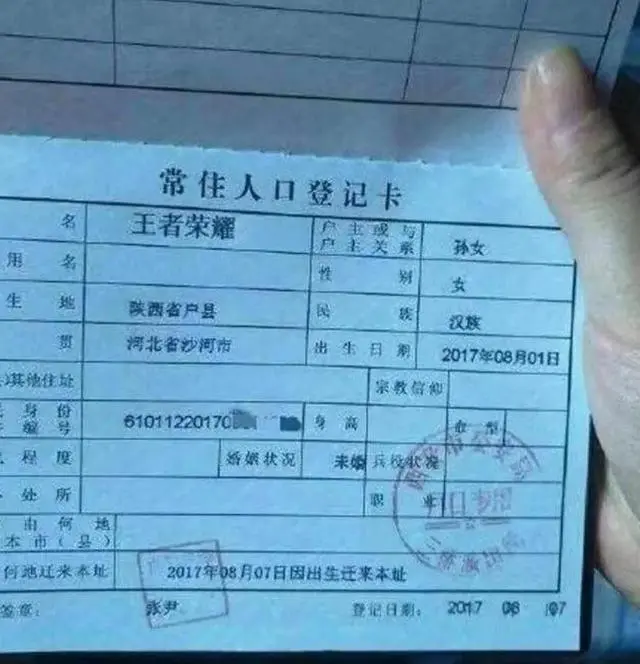 常住人口登记卡
名 王者荣耀 户主或与户主关系 孙女
用名 性别 女
生地 陕西省户县 民族 汉族
贯 河北省沙河市 出生日期 2017年08月01日
其他住址 宗教信仰
身份编号 61011220170 身高 血型
程度 婚姻状况 未婚 兵役状况
处所 职业
由何地本市(县)
何地迁来本址 2017年08月07日因出生迁来本址
签章: 张尹 登记日期: 2017 08 07